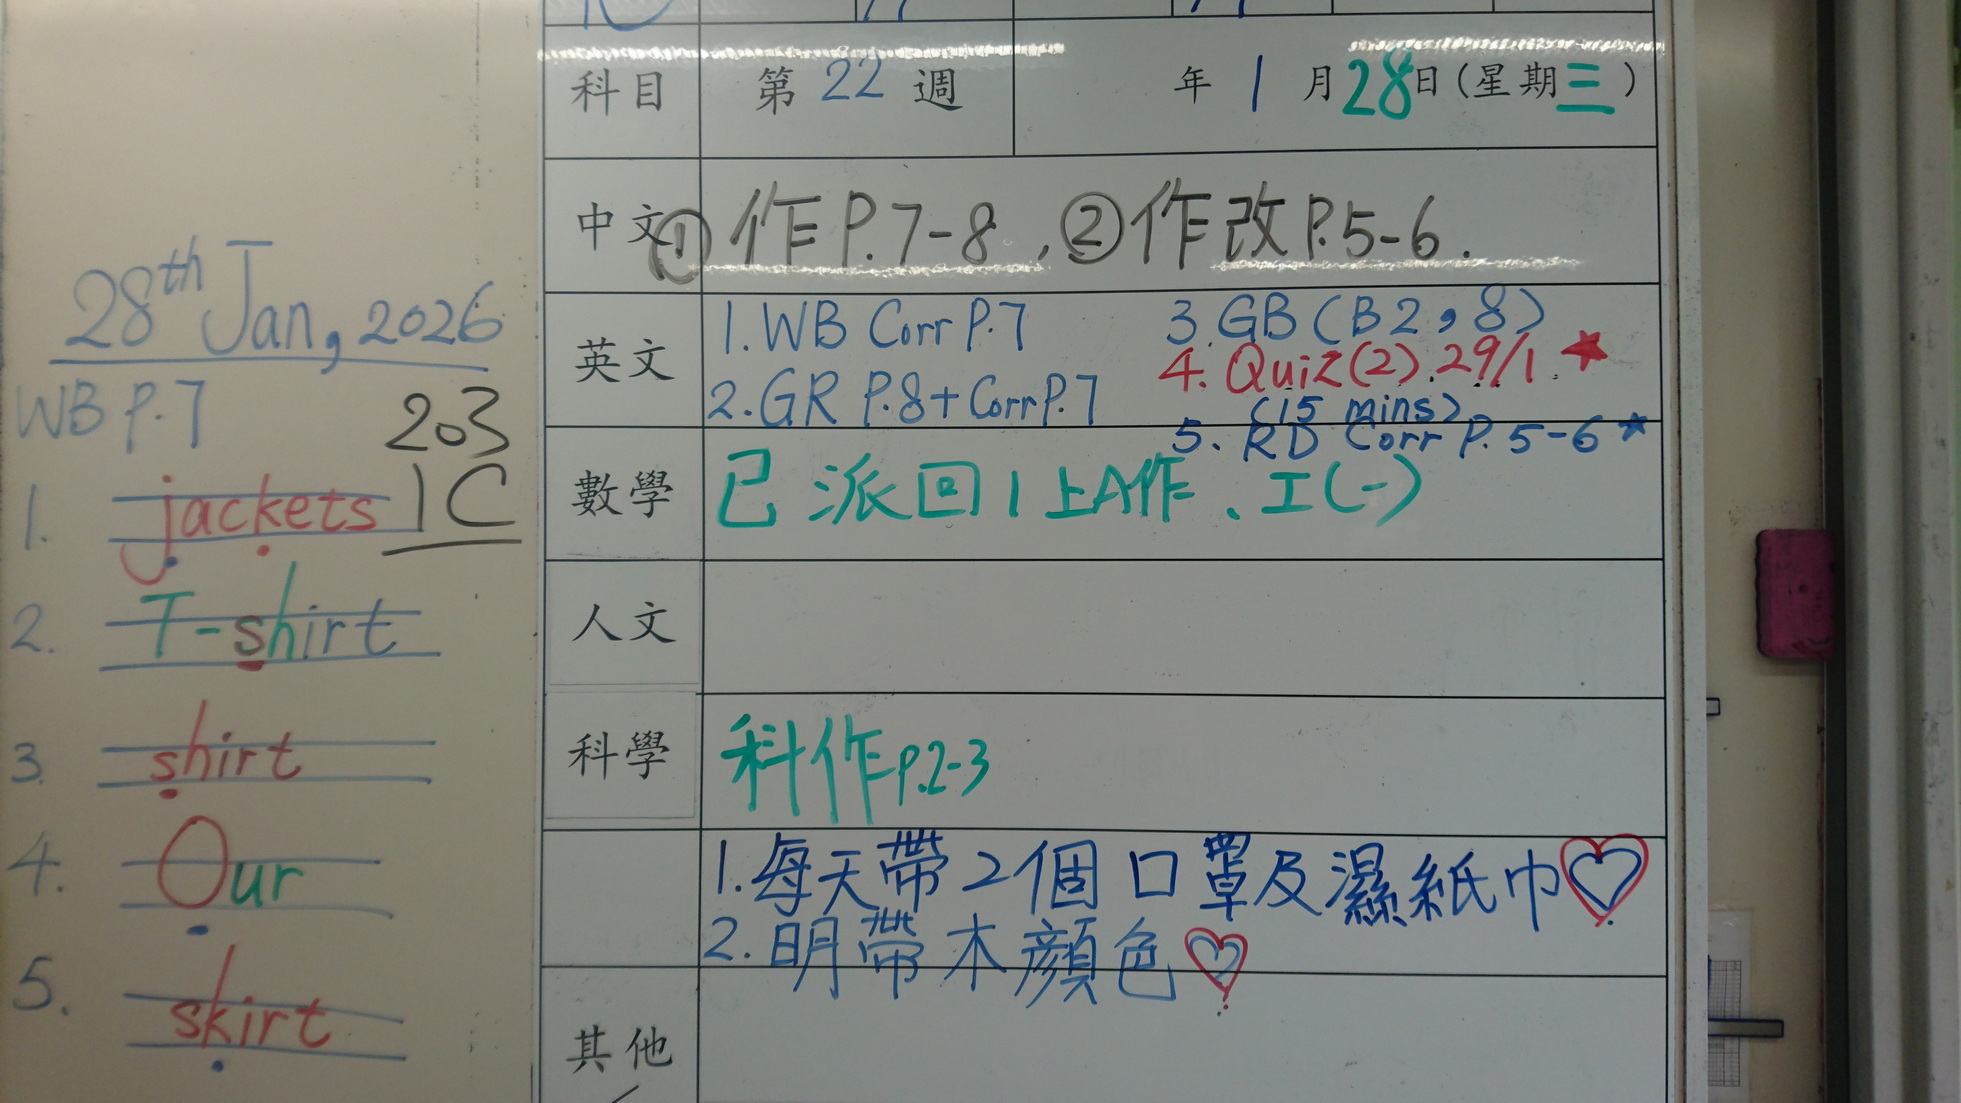 28th Jan, 2026
WB P.7
203
1C
1. jackets
2. T-shirt
3. shirt
4. Our
5. skirt
科目 第 22 週 年 1 月 28 日 (星期三)
中文 ① 作 P.7-8 、② 作改 P.5-6.
英文
1. WB Corr P.7
2. GR P.8 + Corr P.7
3. GB (B2, 8)
4. Quiz (2) 29/1 ★
(15 mins)
5. RD Corr P. 5-6 ★
數學 已派回1上A作、工(一)
人文
科學 科作 p.2-3
1. 每天帶2個口罩及濕紙巾♡
2. 明帶木顏色♡
其他